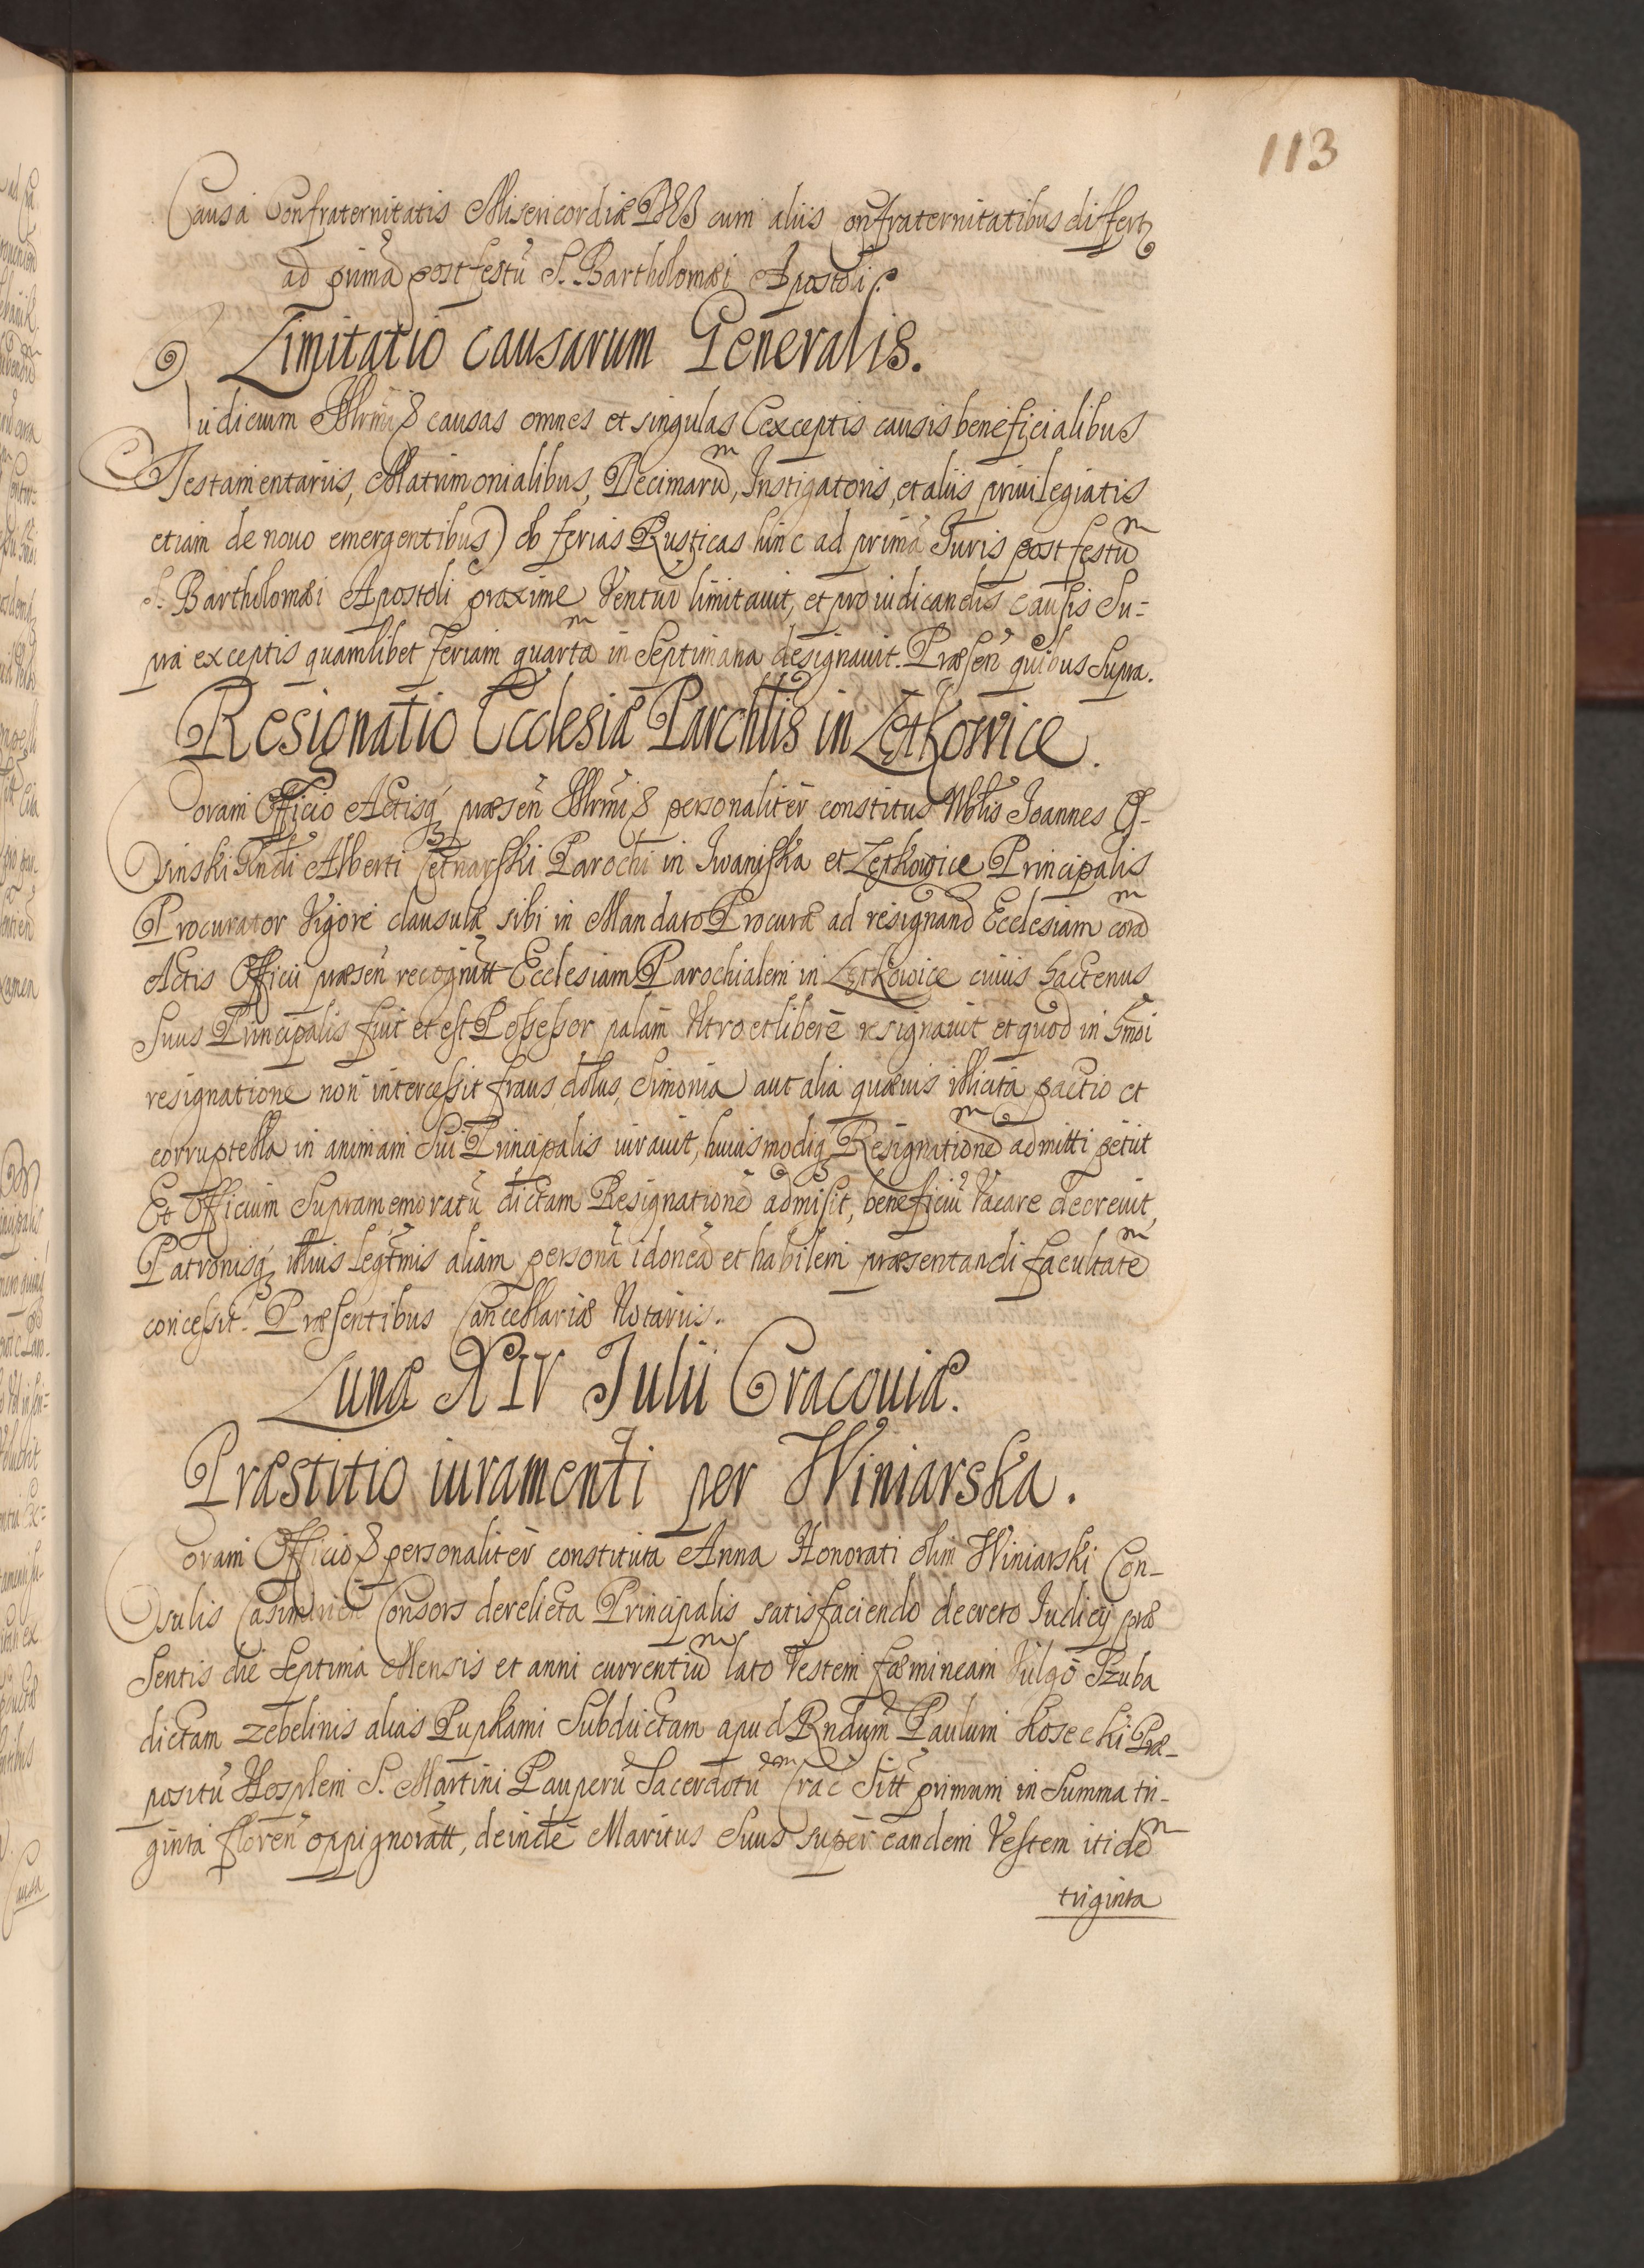 113
Causa Confraternitatis Misericordiæ cum aliis Confraternitatibus differt
ad primã post festũ S. Bartholomæi Apostoli.
Limitatio causarum Generalis.
Iudicium Illrmi causas omnes et singulas (exceptis causis beneficialibus
Testamentariis, Matrimonialibus, Decimarũ, Instigatoris, et aliis privilegiatis
etiam de novo emergentibus) ob ferias Rusticas hinc ad primã Iuris post festũ
S. Bartholomæi Apostoli proxime Ventur̃ limitavit, et pro iudicandis causis Su=
pra exceptis quamlibet feriam quartã in Septimana designavit. Præsen̄ quibus supra.
Resignatio Ecclesiæ Parchlis in Zętkowice.
Coram Officio Actisq́ præsen̄ Illrmi personaliter constitus Nblis Ioannes
sinski Alberti Setnarski Parochi in Iwaniska et Zętkowice Principalis
Procurator Vigore clausulæ sibi in Mandato Procuræ ad resignand̄ Ecclesiam corã
Actis Officii præsen̄ recognitt Ecclesiam Parochialem in Zętkowice cuius hactenus
Suus Principalis fuit et est Possessor palam Vltro et libere resignavit et quod in hmõi
resignatione non intercessit fraus, dolus, Simonia aut alia quævis illicita pactio et
corruptella in animam Sui Principalis iuravit, huiusmodiq́ Resignationẽ admitti petiit
Et Officium Supramemoratũ dictam Resignationẽ admisit, beneficiũ Vacare decrevit,
Patronisq́ illius legtmis aliam personã idoneã et habilem præsentandi facultatẽ
concessit. Præsentibus Cancellariæ Notariis.
Lunæ XIV Iulii Cracoviæ.
Præstitio iuramenti per Winiarska.
Coram Officio personaliter constituta Anna Honorati olim Winiarski Con-
sulis Casimirien̄ Consors derelicta Principalis satisfaciendo decreto Iudicij præ
sentis die Septima Mensis et anni currentiũ lato Vestem fæmineam Vulgo Szuba
dictam zebelinis alias Pupkami Subductam apud Rndum Paulum Kosecki Præ-
positũ Hosplem S. Martini Pauperũ Sacerdotũ Crac Sitt primum in Summa tri-
ginta floren̄ oppignoratt, deinde Maritus Suus super eandem Vestem itidẽ
triginta